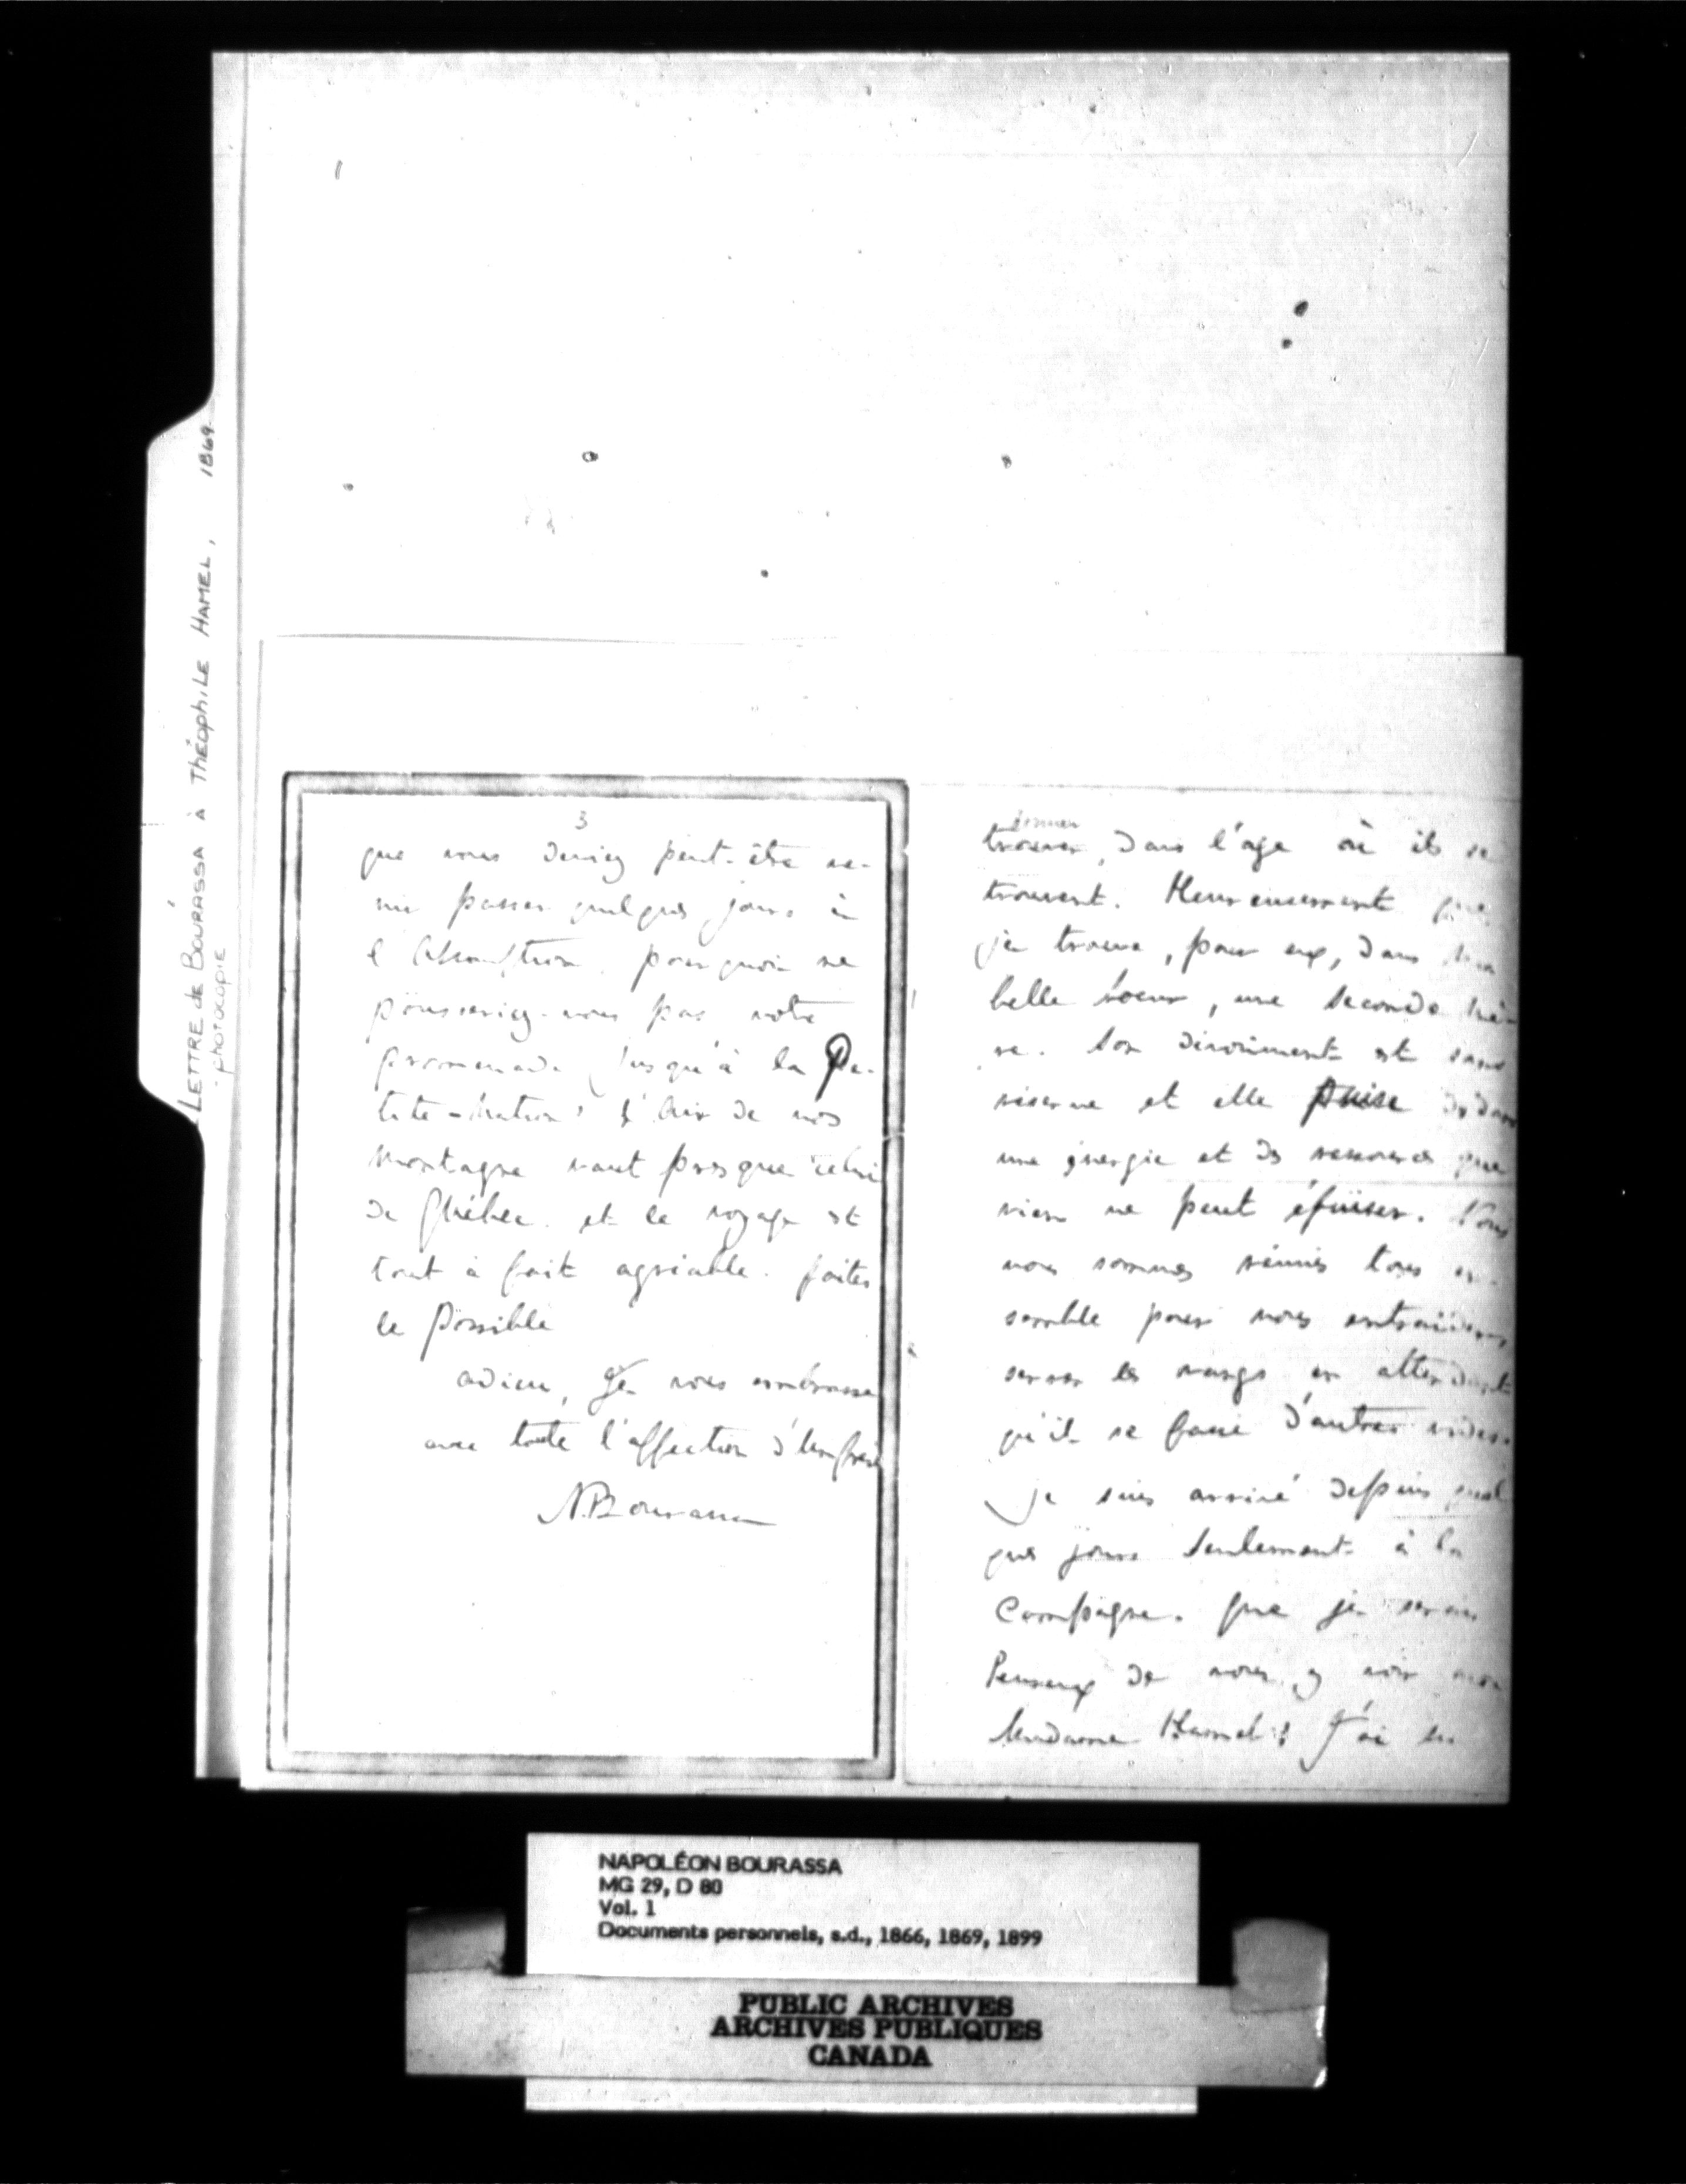 LETTRE de BOURASSA à Théophile HAMEL, 1869
- photocopie
3
que vous deviez peut-être ve-
nir passer quelques jours à
l'Assomption. pourquoi ne
pousseriez-vous pas votre
promenade jusqu'à la Pe-
tite-Nation? L'air de nos
montagne vaut presque celui
de Québec. et le voyage est
tout à fait agréable. faites
le possible
adieu, Je vous embrasse
avec toute l'affection d'un frère
N. Bourassa
trouver, dans l'age où ils se
trouvent. Heureusement que
je trouve, pour eux, dans ma
belle soeur, une seconde mè-
re. Son dévoument est sans
réserve et elle puise dedans
une énergie et des ressources que
rien ne peut épuiser. Nous
nous sommes réunis tous en-
semble pour nous entraider,
serrer les rangs en attendant
qu'il se fasse d'autres vides.
Je suis arrivé depuis quel
ques jours seulement à la
Campagne. que je serais
heureux de vous y voir avec
Madame Hamel! J'ai su
NAPOLÉON BOURASSA
MG 29, D 80
Vol. 1
Documents personnels, s.d., 1866, 1869, 1899
PUBLIC ARCHIVES
ARCHIVES PUBLIQUES
CANADA